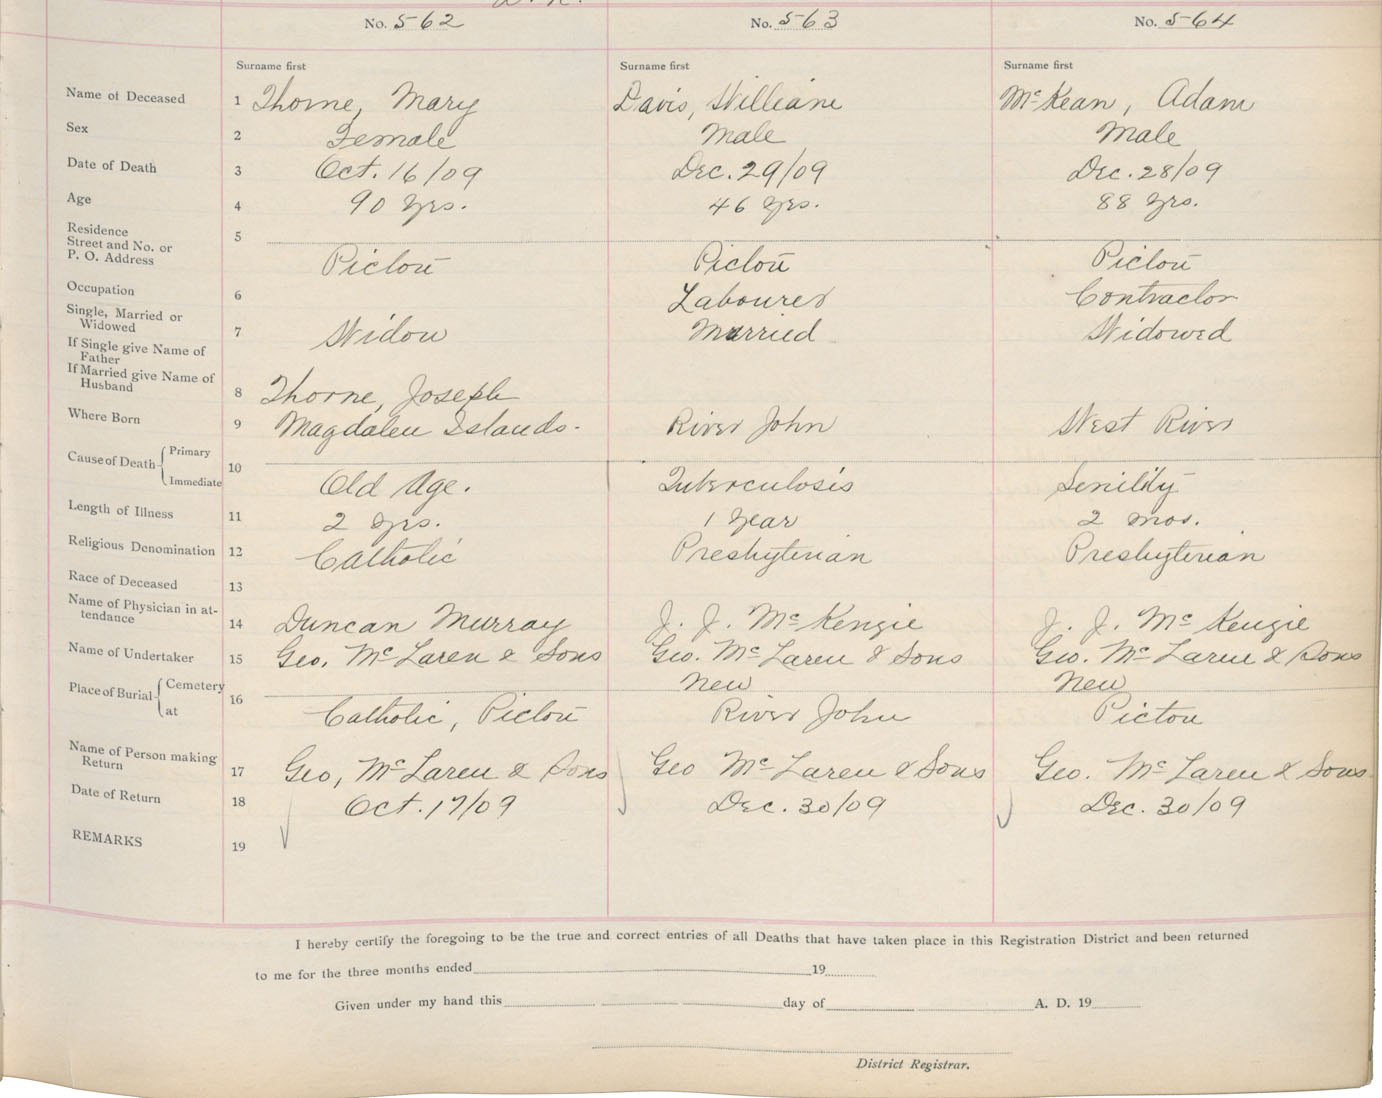 No. 562 No. 563 No. 564
Surname first Surname first Surname first
Name of Deceased 1 Thorne, Mary Davis, William McKean, Adam
Sex 2 Female Male Male
Date of Death 3 Oct. 16/09 Dec. 29/09 Dec. 28/09
Age 4 90 yrs. 46 yrs. 88 yrs.
Residence 5
Street and No. or
P. O. Address Pictou Pictou Pictou
Occupation 6 Labourer Contractor
Single, Married or
Widowed 7 Widow Married Widowed
If Single give Name of
Father
If Married give Name of
Husband 8 Thorne, Joseph
Where Born 9 Magdalen Islands. River John West River
Cause of Death Primary
10
Immediate Old Age. Tuberculosis Senility
Length of Illness 11 2 yrs. 1 year 2 mos.
Religious Denomination 12 Catholic Presbyterian Presbyterian
Race of Deceased 13
Name of Physician in at-
tendance 14 Duncan Murray J. J. McKenzie J. J. McKenzie
Name of Undertaker 15 Geo. McLaren & Sons Geo. McLaren & Sons Geo. McLaren & Sons
Place of Burial Cemetery 16 New New
at Catholic, Pictou River John Pictou
Name of Person making
Return 17 Geo, McLaren & Sons Geo McLaren & Sons Geo. McLaren & Sons
Date of Return 18 Oct. 17/09 Dec. 30/09 Dec. 30/09
REMARKS 19
I hereby certify the foregoing to be the true and correct entries of all Deaths that have taken place in this Registration District and been returned
to me for the three months ended 19
Given under my hand this day of A. D. 19
District Registrar.